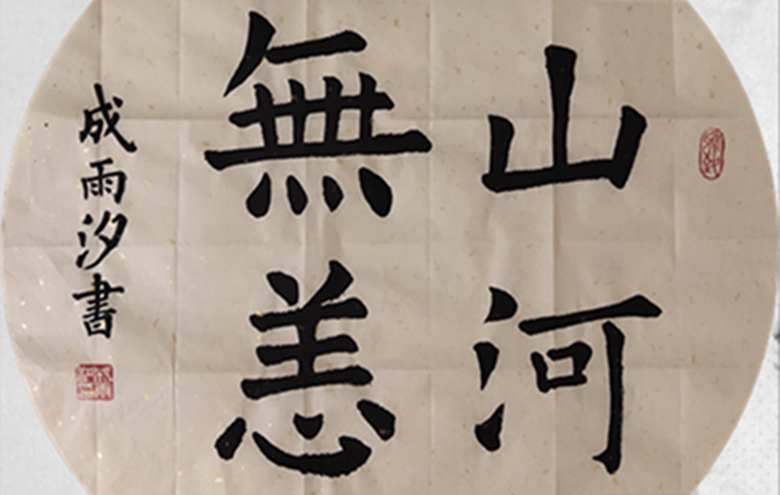 山河
無恙
成雨汐書